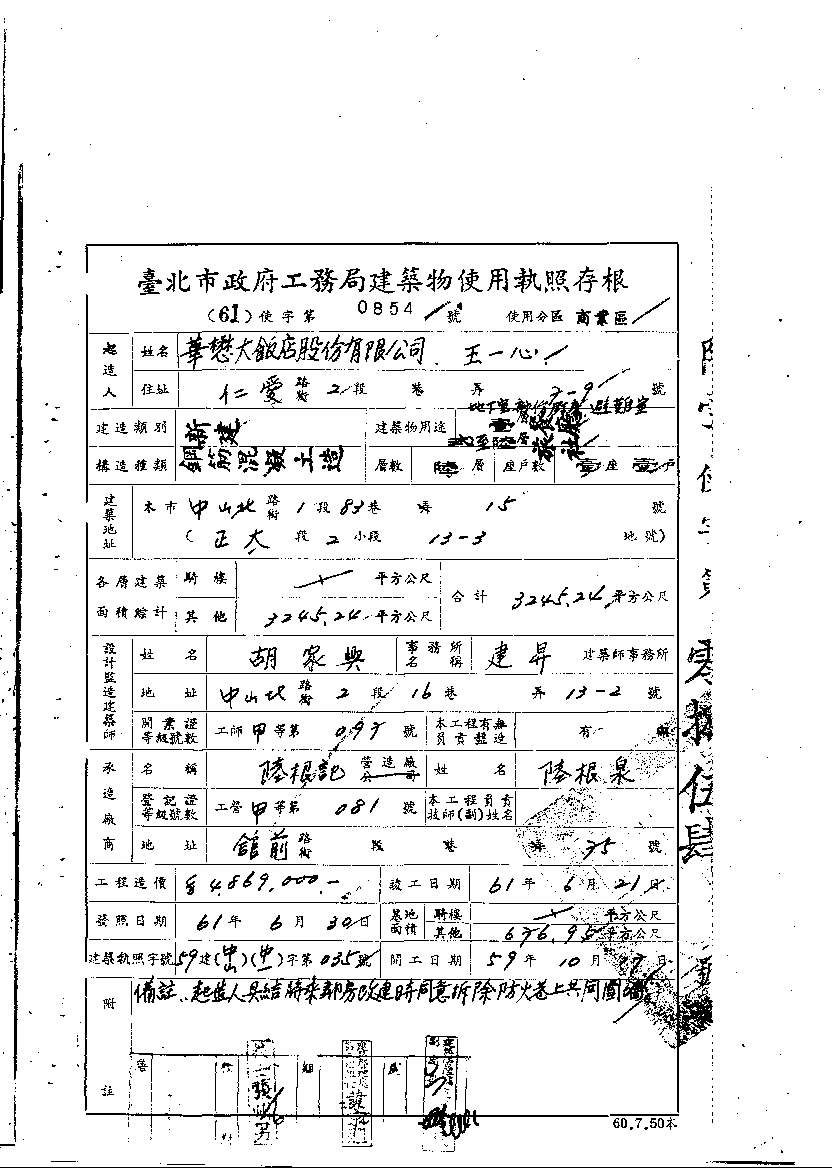 臺北市政府工務局建築物使用執照存根
(61)使字第 0854 號 使用分區 商業區
起造人 姓名 華懋大飯店股份有限公司 王一心
住址 仁愛 路街 2段 巷 弄 號
建造類別 新建 建築物用途 地下室 避難室
構造種類 鋼筋混凝土造 層數 陸層 座戶數 壹座 壹戶
建築地址 本市 中山北 路街 1段83巷 弄 15 號
(正大 段 2 小段 13-3 地號)
各層建築面積綜計 騎樓 平方公尺 合計 3245.24 平方公尺
其他 3245.24 平方公尺
設計監造建築師 姓名 胡家興 事務所名稱 建昇 建築師事務所
地址 中山北 路街 2段 16巷 弄 13-2 號
開業證等級號數 工師 甲 等第 號 本工程有無負責監造 有
承造廠商 名稱 陸根記 營造廠 公司 姓名 陸根泉
登記證等級號數 工營 甲 等第 081 號 本工程負責技師(副)姓名
地址 館前 路街 段 巷 弄 35 號
工程造價 $4,869,000.- 竣工日期 61年 6月 21日
發照日期 61年 6月 30日 基地面積 騎樓 平方公尺
其他 676.95 平方公尺
建築執照字號 59建(中山)(中)字第035號 開工日期 59年 10月 27日
附註 備註、起造人具結將來鄰房改建時同意拆除防火巷上共同圍牆
零捌伍肆
60.7.50本